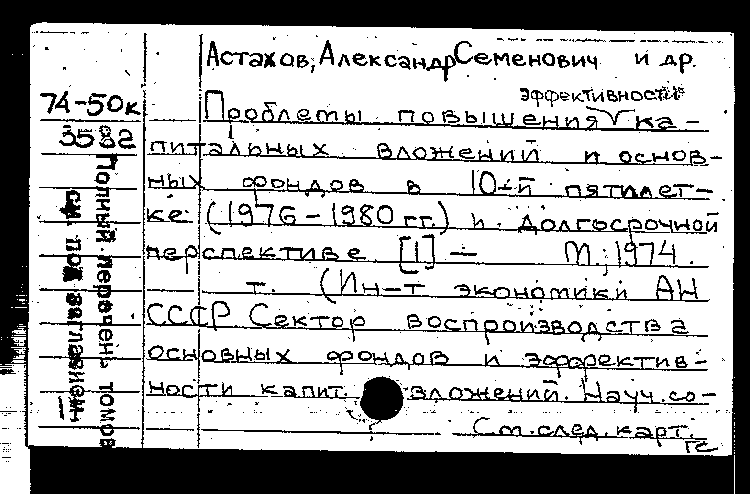 Астахов, Александр Семенович и др.
74-50к
3582
эффективности
Проблемы повышения ка-
питальных вложений и основ-
ных фондов в 10-й пятилет-
ке (1976-1980 гг.) и долгосрочной
перспективе [1] — М., 1974.
т. (Ин-т экономики АН
СССР Сектор воспроизводства
основных фондов и эффектив-
ности капит. вложений. Науч. со-
См. след. карт.
Полный перечень томов
см. под заглавием